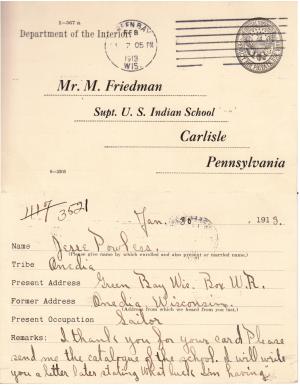 5-367 a
Department of the Interior
GREEN BAY
FEB
7 05 PM
1913
WIS.
Mr. M. Friedman
Supt. U. S. Indian School
Carlisle
Pennsylvania
417 3521
Jan. 30 1913.
Name Jesse Powless.
(Please give name by which enrolled and also present or married name.)
Tribe Onedia
Present Address Green Bay Wis. Box W.R.
Former Address Onedia, Wisconsin.
(Address from which we heard from you last.)
Present Occupation Sailor
Remarks: I thank you for your card. Please
send me the catalogue of the school. I will write
you a letter later stating what luck I'm having.